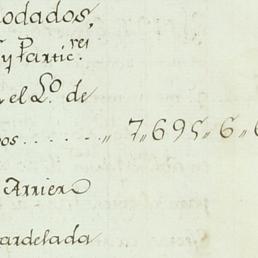 odados,
y Partic.res
el L.o de
pos ....... „ 7„695„6„6
Arriero
ardelada